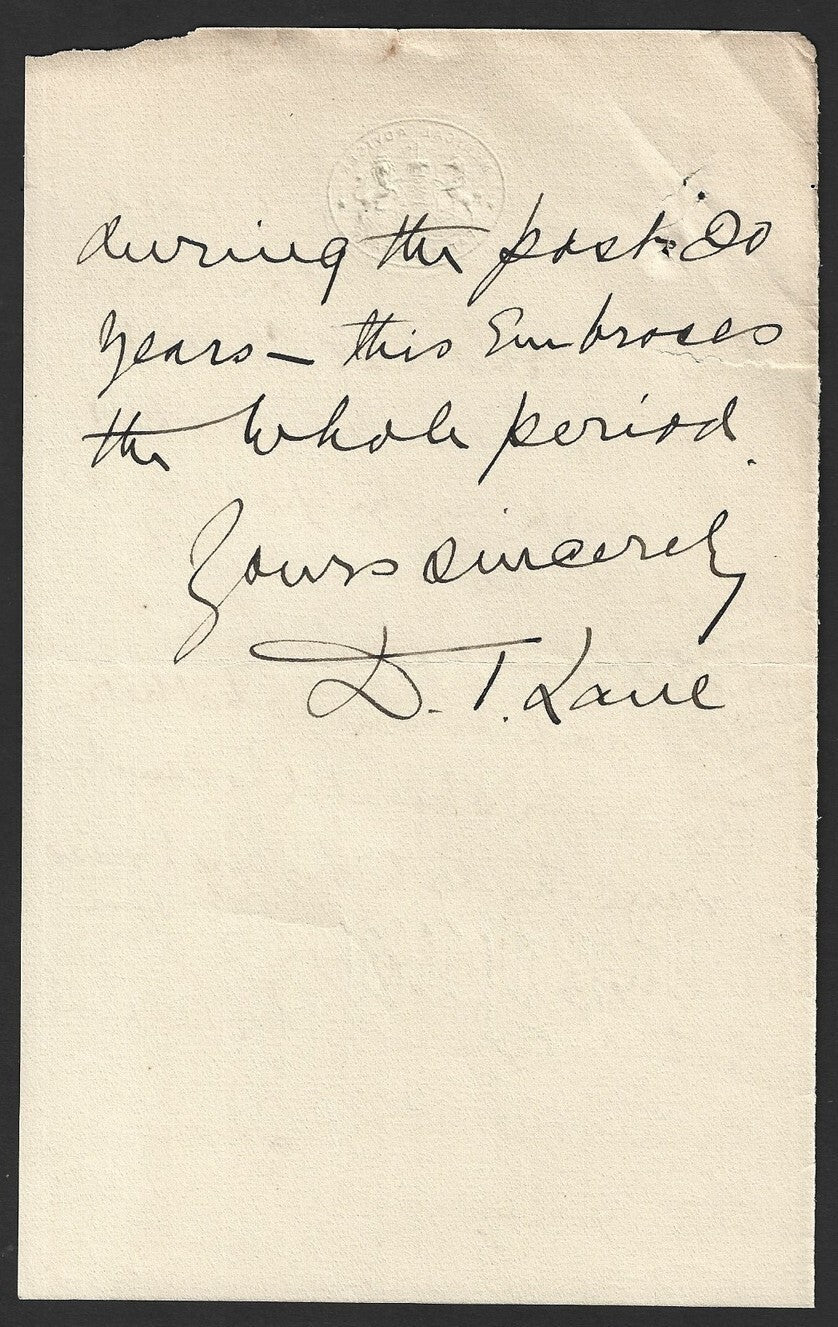 during the past 20
years — this Embraces
the Whole period.
Yours sincerely
D. T. Lane